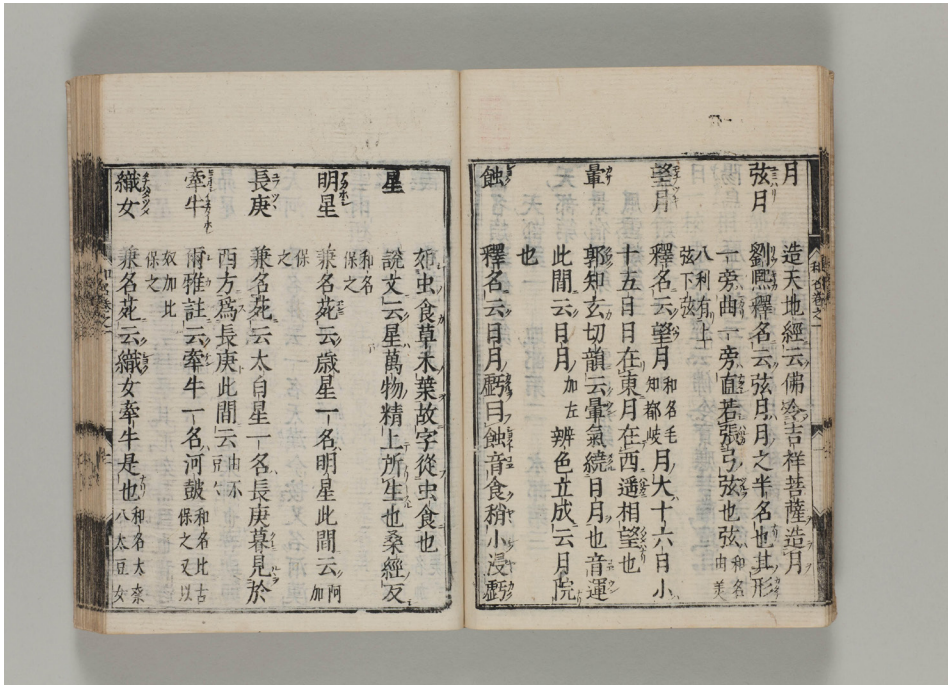 月 造天地經云佛令吉祥菩薩造月
弦月 劉熈釋名云弦月月之半名也其形
一旁曲一旁直若張弓弦也弦和名由美
八利有上
弦下弦
望月 釋名云望月和名毛知都岐月大十六日小
十五日日在東月在西遥相望也
暈 郭知玄切韻云暈氣繞日月也音運
此間云日月加左辨色立成云月院
也
蝕 釋名云日月虧曰蝕音食稍小浸虧
如虫食草木葉故字從虫食也
星 說文云星萬物精上所生也桑經反
和名
保之
明星 兼名苑云歳星一名明星此間云阿加
保之
長庚 兼名苑云太白星一名長庚暮見於
西方爲長庚此間云由不豆豆
牽牛 爾雅註云牽牛一名河鼓和名比古保之又以
奴加比
保之
織女 兼名苑云織女牽牛是也和名太奈八太豆女
和名卷之一